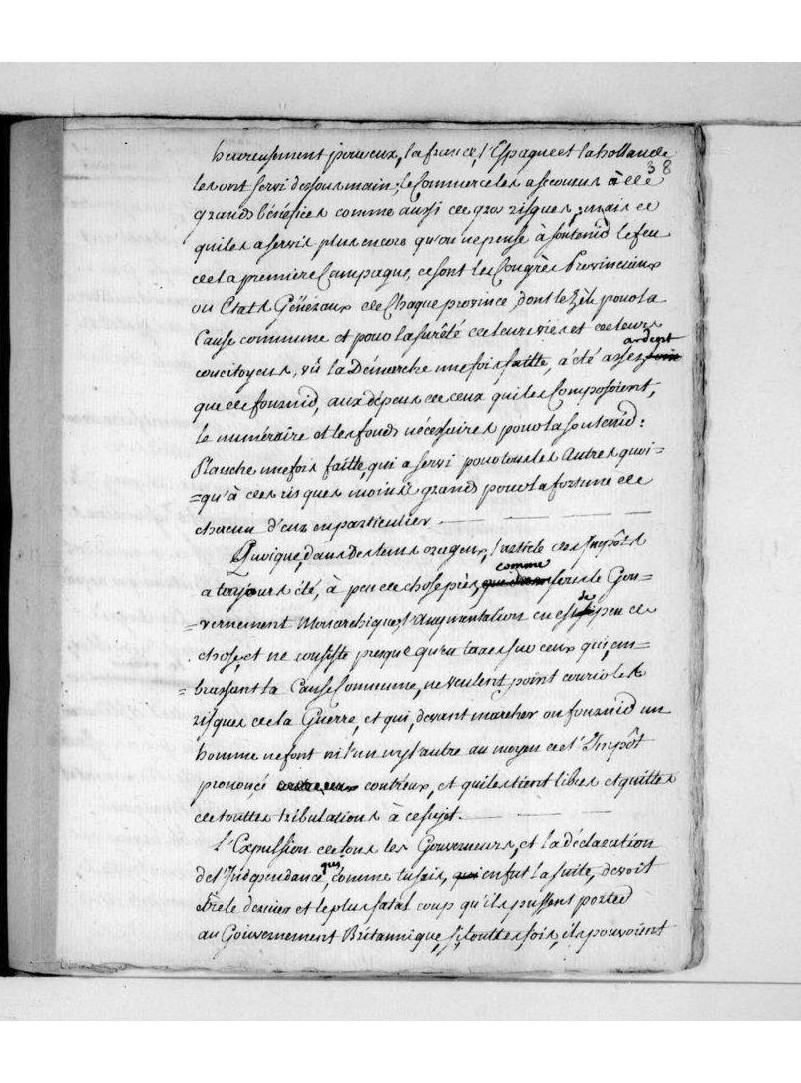 heureusement pour eux, la france, l'Espagne et la hollande
38
les ont servi dessous main; le Commerce les a secourus à de
grands bénéfices comme aussi de gros risques; mais ce
qui les a servis plus encore qu'on ne pense à soutenir le feu
de la premiere Campagne, ce sont les Congrès Provinciaux
ou Etats Généraux de Chaque province, dont le Zèle pour la
Cause commune et pour la surêté de leurs vies et de leurs
concitoyens, vû la Démarche une fois faitte, a été assez ardent
que de fournir, aux dépens de ceux qui les Composoient,
le numéraire et les fonds nécessaires pour la soutenir:
Planche une fois faitte, qui a servi pour tous les Autres quoi=
=qu'à des risques moins grands pour la fortune de
chacun d'eux en particulier.
Quoique, dans des tems orageux, l'article des Impôts
a toujours été, à peu de chose près, comme sous le Gou=
=vernement Monarchique, l'augmentation en est de peu de
chose, et ne consiste presque qu'en taxes sur ceux qui, em=
=brassant la Cause Commune, ne veulent point courir les
risques de la Guerre, et qui, devant marcher ou fournir un
homme ne font ni l'un ny l'autre au moyen de l'Impôt
prononcé contr'eux, et qui les tient libres et quittes
de touttes tribulations à ce sujet.
L'Expulsion de tous les Gouverneurs, et la déclaration
de l'Indépendance, qui, comme tu sais, en fut la suite, devoit
être le dernier et le plus fatal coup qu'ils pussent porter
au Gouvernement Britannique, si, touttes fois, ils pouvoient